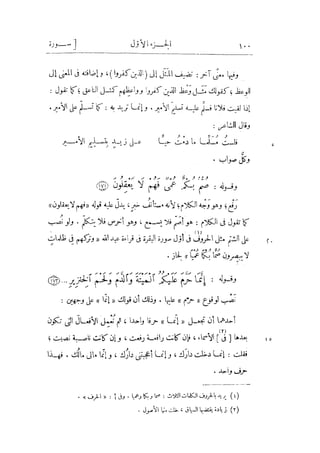 ١٠٠ الجـــزء الأوّل [ ســـورة
وفيها معنًى آخر : تضيف المَثَل إلى (الذين كفروا)، وإضافته فى المعنى إلى
الوعظ ؛ كقولك مَثَل وَعْظ الذين كفروا وواعظهم كمثل الناعق ؛ كما تقول :
إذا لقيت فلانا فسلِّم عليه تسليم الأمير . وإنما تريد به : كما تسلِّم على الأمير .
وقال الشاعر :
٥ فلستُ مُسَلِّما ما دمْتُ حيًّا على زيدٍ بتسليمِ الأميرِ
وكلٌّ صواب .
وقوله : صُمٌّ بُكْمٌ عُمْىٌ فَهُمْ لَا يَعْقِلُونَ (١٧١)
رفع ؛ وهو وجه الكلام ؛ لأنه مستأنف خبرٍ ، يدلّ عليه قوله «فهم لا يعقلون»
كما تقول فى الكلام : هو أصم فلا يسمع ، وهو أخرس فلا يتكلم . ولو نُصِب
١٠ على الشتم مثل الحروف(١) فى أوّل سورة البقرة فى قراءة عبد الله « وتركهم فى ظلمات
لا يبصرون صُمًّا بُكْمًا عُمْيًا » لجاز .
وقوله : إِنَّمَا حَرَّمَ عَلَيْكُمُ الْمَيْتَةَ وَالدَّمَ وَلَحْمَ الْخِنْزِيرِ ... (١٧٣)
نصب لوقوع « حرم » عليها . وذلك أن قولك « إنّما » على وجهين :
أحدهما أن تجعل « إنّما » حرفا واحدا ، ثم تُعمل الأفعال التى تكون
١٥ بعدها [ فى ](٢) الأسماء ، فإن كانت رافعة رفعت ، وإن كانت ناصبة نصبت ؛
فقلت : إنما دخلت دارك ، وإنما أعجبتنى دارُك ، وإنما مالى مالُك . فهــذا
حرف واحد .
(١) يريد بالحروف الكلمات الثلاث : صما وبكما وعميا . وفى أ : « الحرف » .
(٢) زيادة يقتضيها السياق ، خلت منها الأصول .